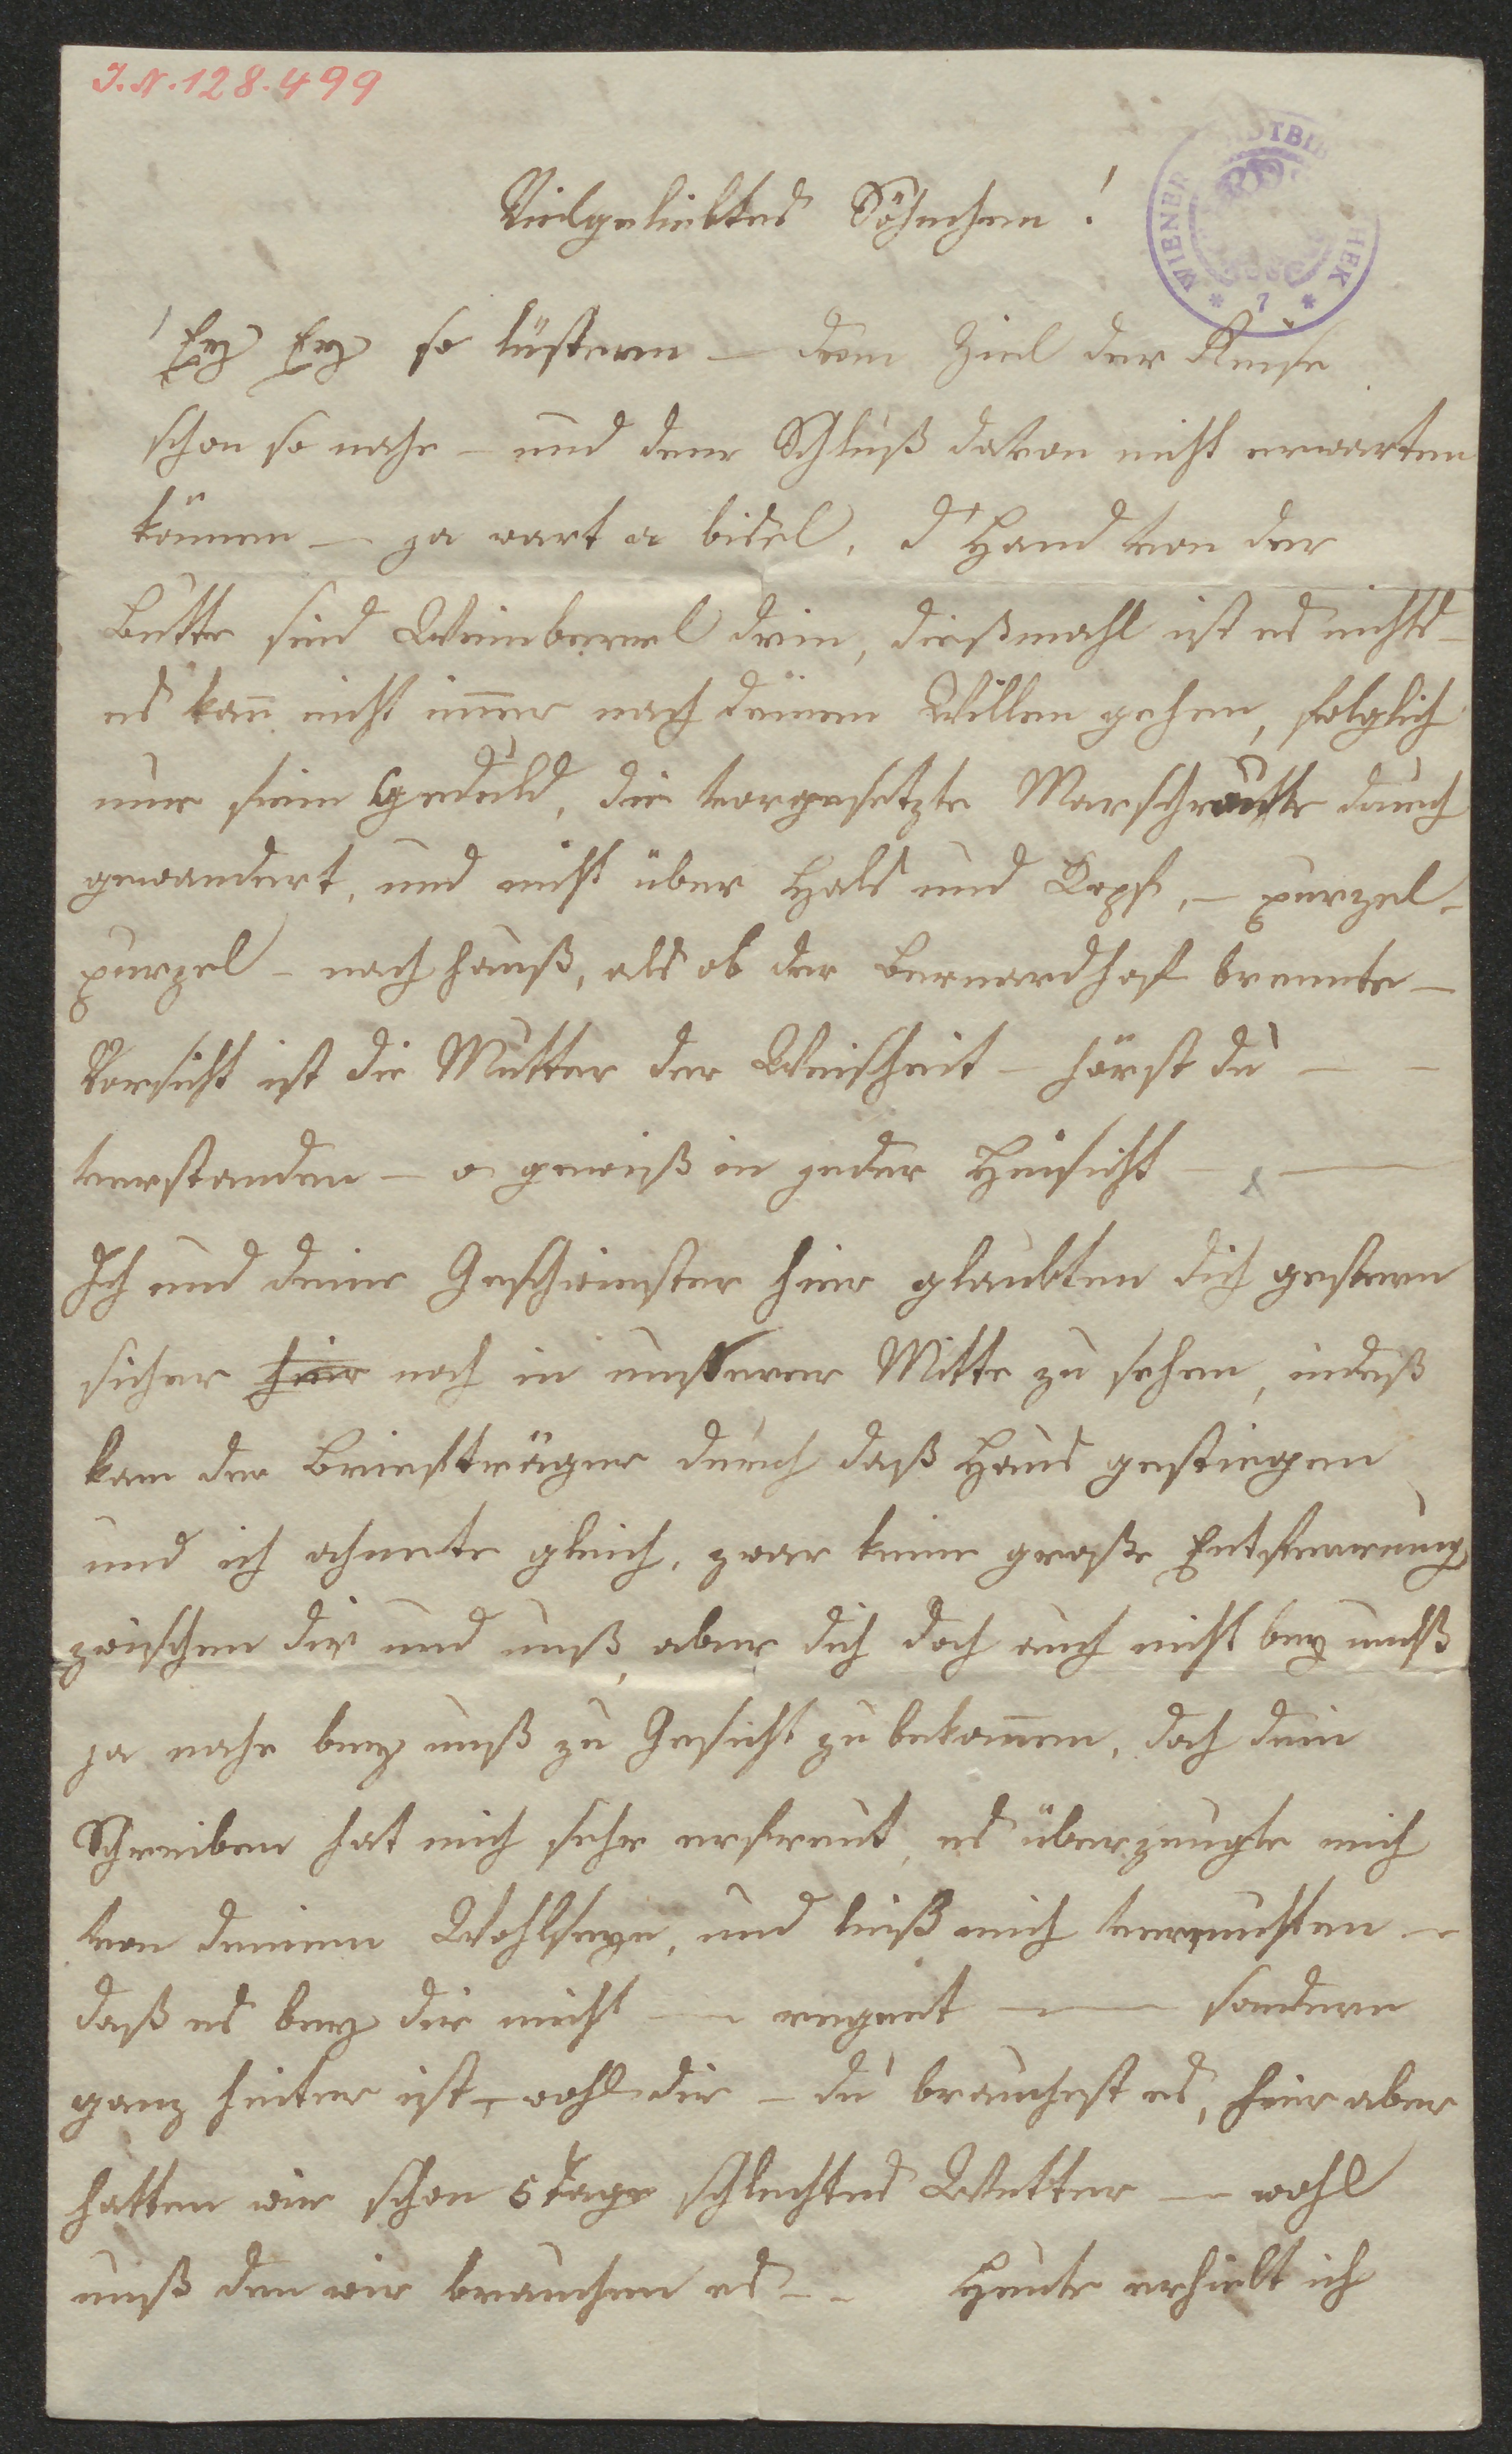 I.N. 128.499
WIENER STADTBIBLIOTHEK
* 7 *
Vielgeliebtes Söhnchen!
Ey Ey so lüstern — dem Ziel der Reise
schon so nahe – und den Schluß davon nicht erwarten
können — ja wart a bisel, d' Hand von der
Butte sind Weinberrel drin, dießmahl ist es nichts –
es kan̄ nicht im̄er nach deinem Willen gehen, folglich
nur fein Geduld, die vorgesetzte Marschroutte durch
gewandert, und nicht über Hals und Kopf, – purzel –
purzel – nach hauß, als ob der Bernardhof brennte –
Vorsicht ist die Mutter der Weisheit – hörst du – –
verstanden – o gewieß in jeder Hinsicht – —
Ich und deine Geschwister hier glaubten dich gestern
sicher hier noch in unserer Mitte zu sehen, indeß
kam der Briefträger durch daß Haus gestiegen
und ich ahnete gleich, zwar keine große Entfernung
zwischen dir und unß, aber dich doch auch nicht bey unß
ja nahe bey unß zu Gesicht zu bekom̄en, doch dein
Schreiben hat mich sehr erfreut, es überzeugte mich
von deinem Wohlseyn, und ließ mich vermuthen –
daß es bey dir nicht — regnet — sondern
ganz heiter ist – wohl dir – du brauchest es, hier aber
hatten wir schon 5 Tage schlechtes Wetter — wohl
unß den wir brauchen es – – Heute erhielt ich